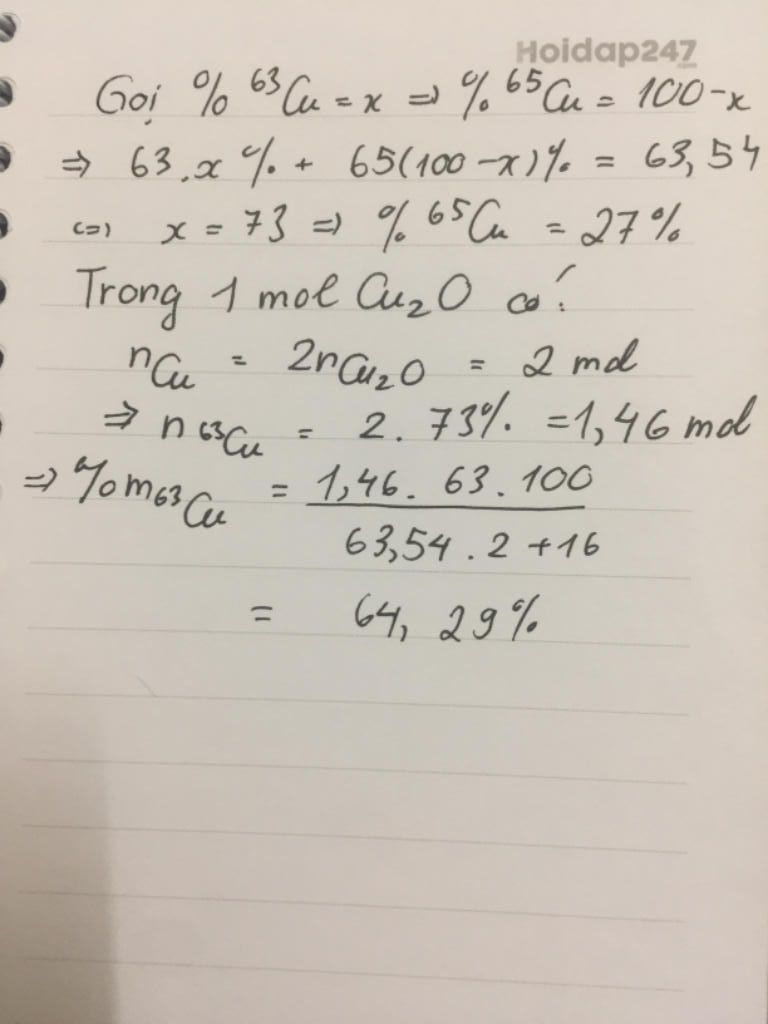 Hoidap247
Gọi % ⁶³Cu = x => % ⁶⁵Cu = 100-x
=> 63.x% + 65(100-x)% = 63,54
<=> x = 73 => % ⁶⁵Cu = 27%
Trong 1 mol Cu₂O có:
nCu = 2nCu₂O = 2 mol
=> n⁶³Cu = 2. 73% = 1,46 mol
=> %m⁶³Cu = 1,46. 63. 100
63,54. 2 + 16
= 64, 29%